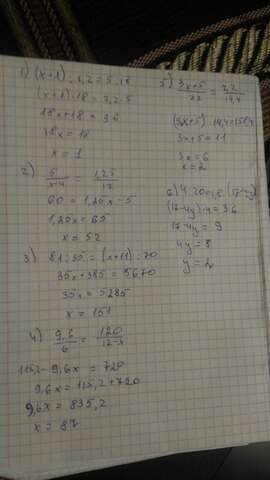 1) (x+1) : 7,2 = 5 : 18
(x+1) · 18 = 7,2 · 5
18x+18 = 36
18x = 18
x = 1
2) 5/x-4 = 1,25/12
60 = 1,25x - 5
1,25x = 65
x = 52
3) 81 : 35 = (x+11) : 70
35x + 385 = 5670
35x = 5285
x = 151
4) 9,6/6 = 120/12-x
115,2 - 9,6x = 720
9,6x = 115,2 + 720
9,6x = 835,2
x = 87
5) 3x+5/22 = 7,2/14,4
(3x+5) · 14,4 = 158,4
3x+5 = 11
3x = 6
x = 2
(17-4y) · 4 = 36
17-4y = 9
4y = 8
y = 2